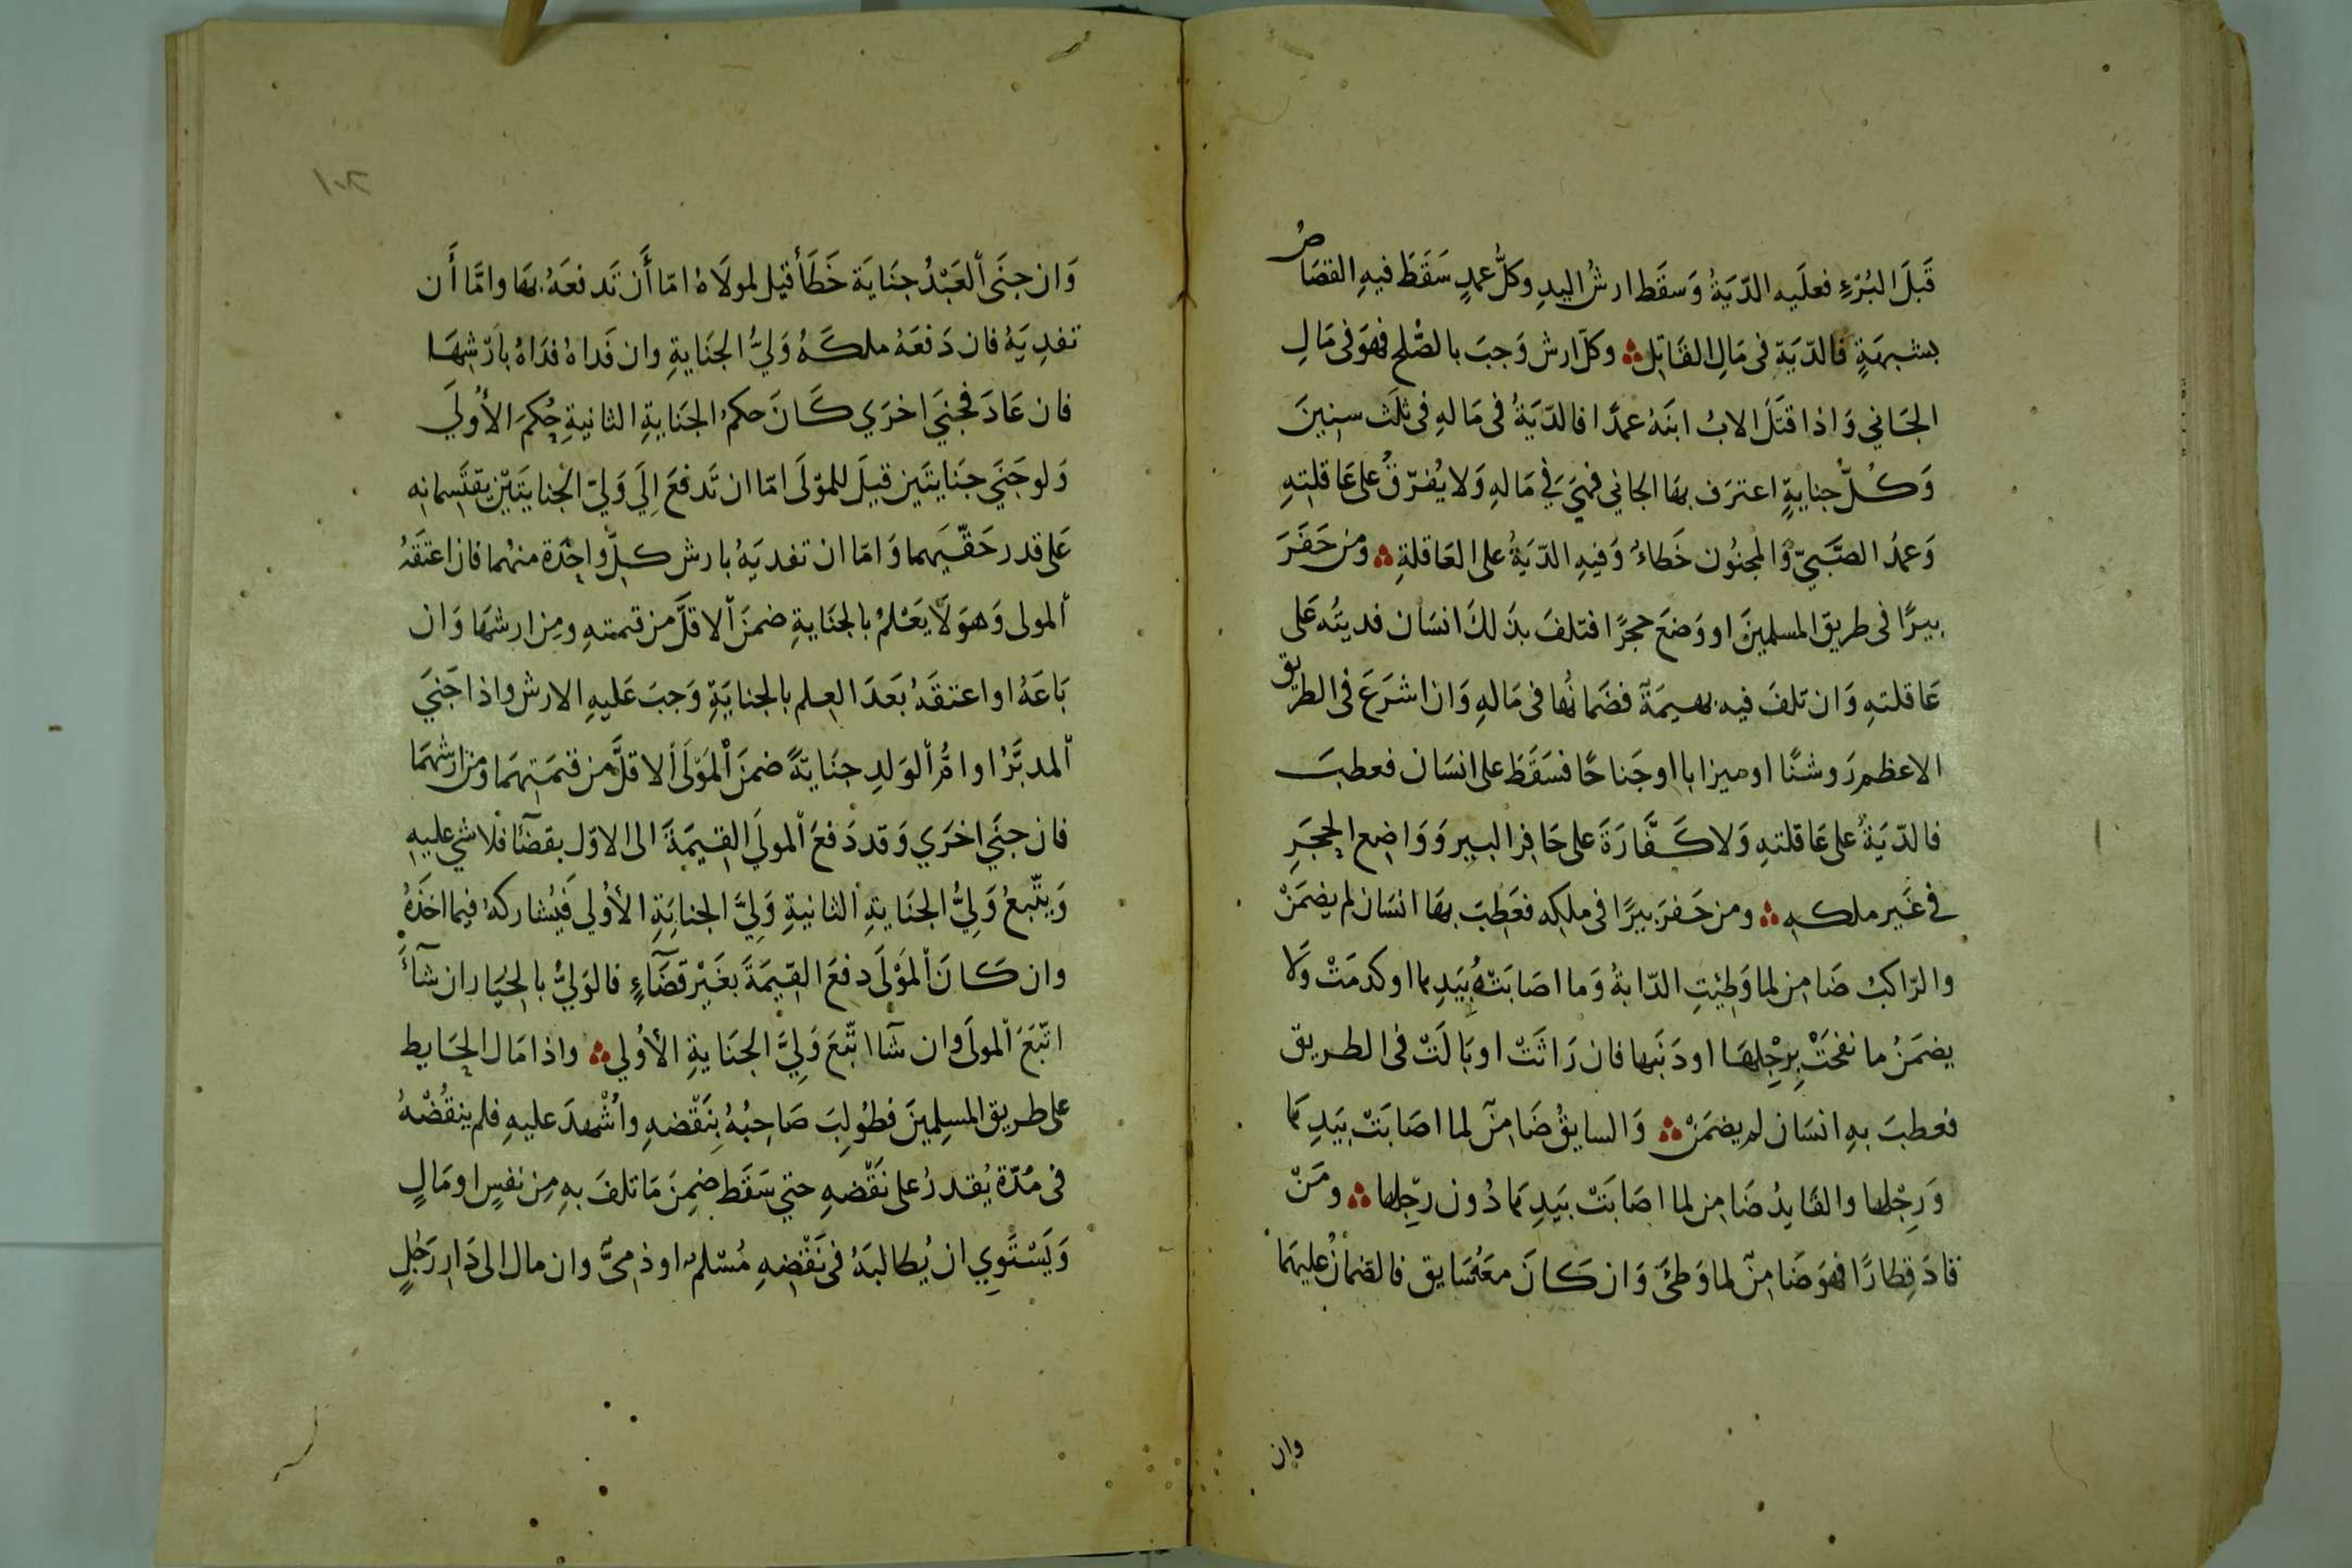 قَبلَ البُرْءِ فعلَيه الدّيَةُ وَسقَط ارشُ اليدِ وكلُّ عمدٍ سَقَطَ فيهِ القصَاصُ
بشبهَةٍ فالدّيَة فى مَالِ القَاتِل ؞ وكلّ ارش وَجبَ بالصّلح فهوَ فى مَالِ
الجَاني وَاذا قتَلَ الابُ ابنَهُ عمدًا فالدّيَةُ فى مَالهِ فى ثلَث سِنينَ
وَكُلُّ جنايةٍ اعترَف بهَا الجاني فهيَ فِي مَالهِ وَلا يُفرّقُ على عَاقلتِهِ
وَعمدُ الصَّبيّ وَالمجنُون خَطاءٌ وَفيهِ الدّيَةُ على العَاقلةِ ؞ ومن حَفَرَ
بِيرًا فى طريق المسلمينَ او وَضعَ حجرًا فتلفَ بذَلكَ انسَان فديتُه عَلى
عَاقلتهِ وَان تلفَ فيه بهيمَة فضَمانُها فى مَالهِ وَان اشرَعَ فى الطريق
الاعظمِ رَوشنًا او ميزابا او جَناحًا فسَقَطَ على انسَان فعطبَ
فالدّيَةُ على عَاقلتهِ وَلا كَفَّارَةَ على حَافِرِ البير وَوَاضِع الحجَرِ
في غَير ملكهِ ؞ ومن حَفرَ بيرًا فى ملكِه فعَطِبَ بهَا انسَان لم يضمَنْ
والرّاكبُ ضَامِن لما وَطِئتِ الدّابةُ وَما اصَابَتْهُ بيَدِها او كدمَتْ وَلا
يضمَنُ ما نفحَتْ بِرِجْلِهَا او ذَنَبها فان رَاثَتْ او بَالَتْ فى الطريق
فعطبَ بهِ انسَان لم يضمَنْ ؞ وَالسايقُ ضَامِنٌ لما اصَابَتْ بيَدِهَا
وَرِجْلها والقَايدُ ضَامِن لما اصَابَتْ بيَدِهَا دُون رِجْلِها ؞ ومَنْ
قادَ قِطارًا فهوَ ضَامِنٌ لما وَطئَ وَان كَانَ معَهُ سَايق فالضمَانُ عليهمَا
وان
١٠٢
وَان جنَى العَبْدُ جنَايَة خَطَأً قيل لمولَاهُ امّا أَن تَدفعَهُ بهَا وامَّا أَن
تفدِيَهُ فان دَفعَهُ ملكَهُ وَليُّ الجنَايةِ وان فَداهُ فدَاهُ بارْشِهَا
فان عَادَ فجنيَ اخرَي كَانَ حكمُ الجنَايةِ الثانيةِ حُكمَ الأُولَي
وَلو جَنَي جنَايتَين قيلَ للموْلَى امّا ان تَدفعَ إلَي وَليّ الجنايتَيْن يقتَسمانِه
عَلى قدر حَقّيهما وَامّا ان تفديَهُ بارش كلِّ واحِدَة منهُما فان اعتَقَهُ
المولى وَهوَ لَا يَعْلمُ بالجنَايةِ ضمنَ الاقلَّ من قيمتهِ ومِن ارشهَا وَان
بَاعَهُ او اعتقَهُ بَعدَ العِلم بالجنايَةِ وَجبَ عَليهِ الارش واذا جَنيَ
المدبَّرُ او امُّ الوَلدِ جنَايَةً ضمنَ الموْلَى الاقلَّ من قيمَتِهمَا ومن ارشهمَا
فان جنَي اخرَي وَقد دَفعَ المولَي القِيمَةَ الى الاوّل بقضَآءٍ فلا شي عليهِ
وَيتّبعُ وَليُّ الجنَايةِ الثانيةِ وَليَّ الجنايَةِ الأُولي فيُشاركهُ فيما اخذَهُ
وان كَانَ الموْلَى دفعَ القيمَةَ بغَيْر قضَآءٍ فالوَليُّ بالخيَار ان شآءَ
اتّبَعَ المولَى وان شآ اتّبَعَ وَليَّ الجنَايةِ الأُولي ؞ واذا مَال الحَايط
على طريق المسلِمينَ فطُولِبَ صَاحِبُهُ بنَقْضهِ واُشْهدَ عليهِ فلم ينقُضْهُ
فى مُدّة يُقدرُ على نَقْضهِ حتي سَقَط ضمِنَ مَا تلفَ بهِ مِن نفسٍ او مَالٍ
وَيَسْتَوِي ان يُطالبَهُ فى نَقْضِهِ مُسْلمٌ او ذمِىٌّ وان مال الى دَارِ رَجُلٍ